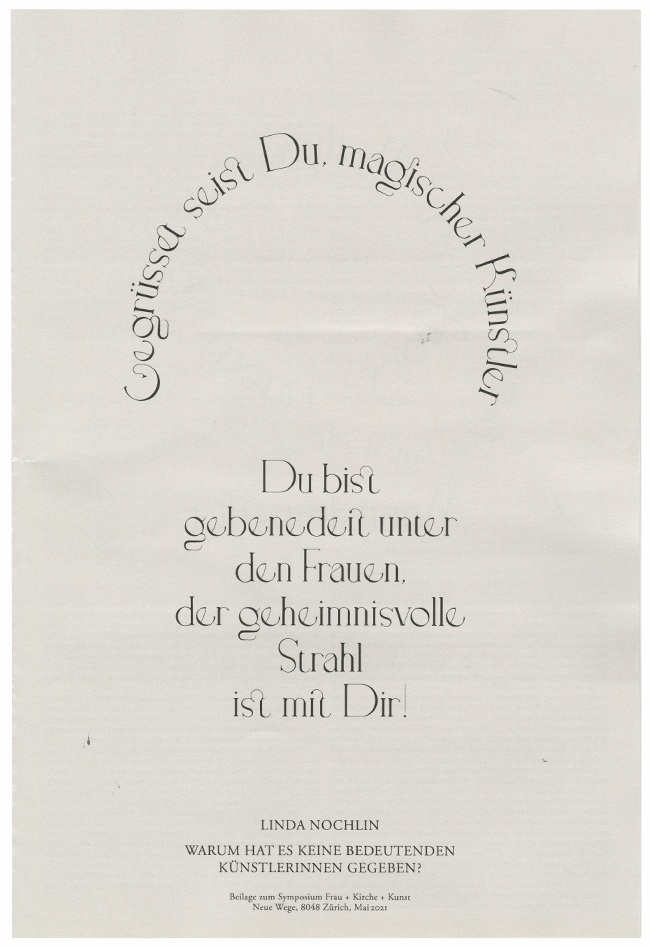 Gegrüsset seist Du, magischer Künstler
Du bist
gebenedeit unter
den Frauen,
der geheimnisvolle
Strahl
ist mit Dir!
LINDA NOCHLIN
WARUM HAT ES KEINE BEDEUTENDEN
KÜNSTLERINNEN GEGEBEN?
Beilage zum Symposium Frau + Kirche + Kunst
Neue Wege, 8048 Zürich, Mai 2021